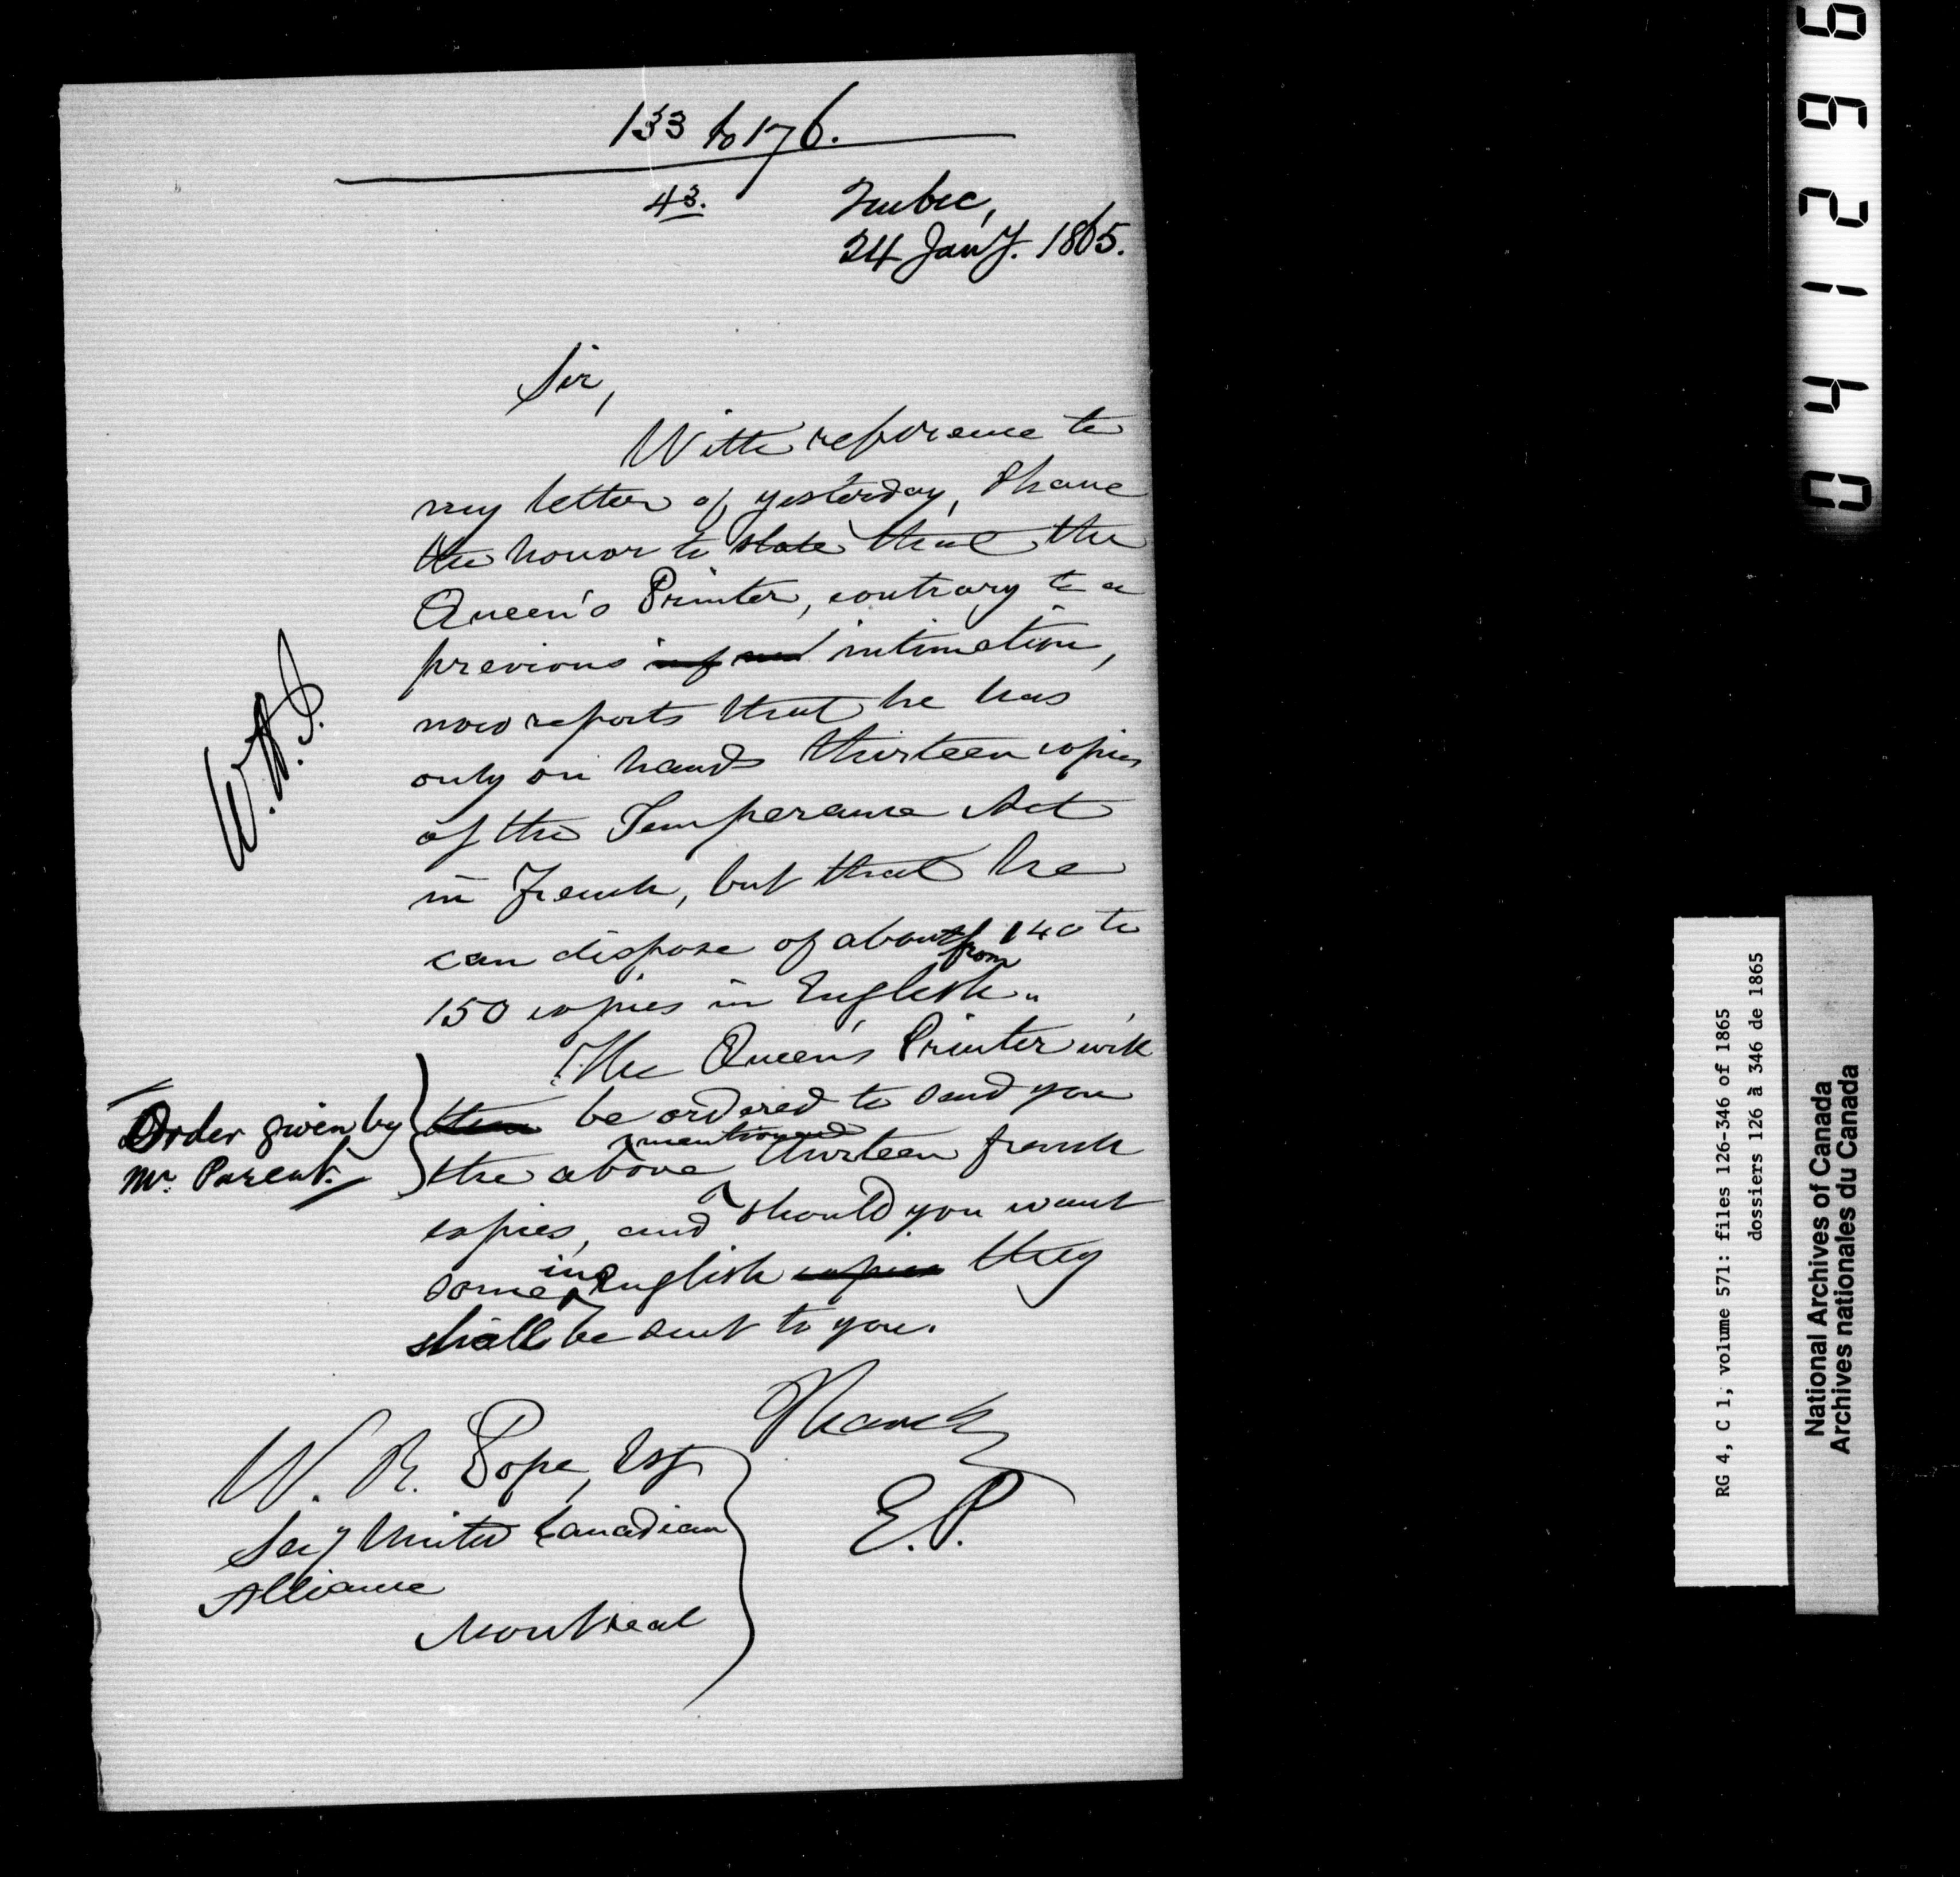 133 to 176.
43.
Quebec,
24 Jany. 1865.
Sir,
With reference to
my letter of yesterday, I have
the honor to state that the
Queen's Printer, contrary to a
previous intimation,
now reports that he has
only on hands thirteen copies
of the Temperance Act
in French, but that he
can dispose of about from 140 to
150 copies in English.
The Queen's Printer will
then be ordered to send you
the above mentioned thirteen french
copies, and should you want
some in English copies they
shall be sent to you.
Order given by
Mr. Parent.
W. R. Pope, Esq
Secy United Canadian
Alliance
Montreal
E.P.
RG 4, C 1, volume 571: files 126-346 of 1865
dossiers 126 à 346 de 1865
National Archives of Canada
Archives nationales du Canada
041296